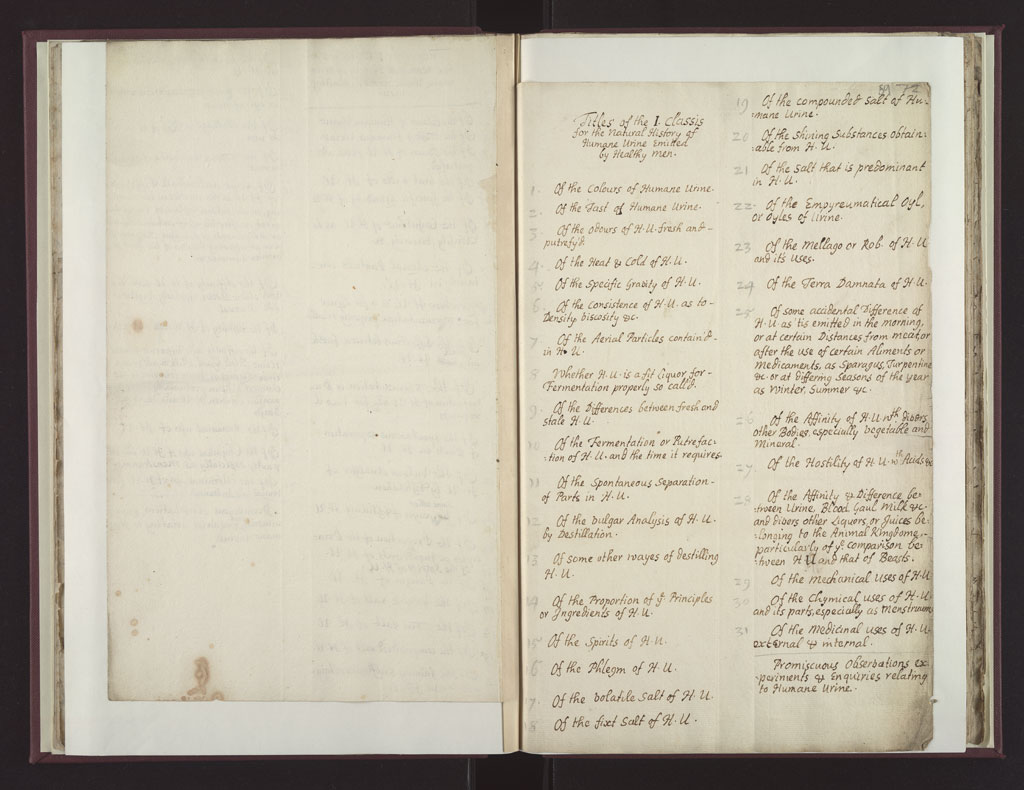 Titles of the I. Classis
for the Natural History of
Humane Urine Emitted
by Healthy men.
1. Of the Colours of Humane Urine.
2. Of the Tast of Humane Urine.
3. Of the odours of H. U. fresh and
putrefy'd.
4. Of the Heat & Cold of H. U.
5. Of the Specific Gravity of H. U.
6. Of the Consistence of H. U. as to
Density, viscosity &c.
7. Of the Aerial Particles contain'd
in H. U.
8. Whether H. U. is a fit Liquor for
Fermentation properly so call'd.
9. Of the Differences between fresh and
stale H. U.
10 Of the Fermentation or Putrefac:
:tion of H. U. and the time it requires
11 Of the Spontaneous Separation
of Parts in H. U.
12 Of the vulgar Analysis of H. U.
by Destillation.
13 Of some other wayes of destilling
H. U.
14 Of the Proportion of ye Principles
or Ingredients of H. U.
15 Of the Spirits of H. U.
16 Of the Phlegm of H. U.
17. Of the volatile Salt of H. U.
18 Of the fixt Salt of H. U.
19 Of the compounded Salt of Hu:
:mane Urine.
20 Of the Shining Substances obtain:
:able from H. U.
21 Of the Salt that is predominant
in H. U.
22 Of the Empyreumatical Oyl,
or Oyles of Urine.
23 Of the Mellago or Rob. of H. U.
and its Uses.
24 Of the Terra Damnata of H. U.
25 Of some accidental Difference of
H. U. as 'tis emitted in the morning,
or at certain Distances from meat, or
after the use of certain Aliments or
Medicaments, as Sparagus, Turpentine
&c. or at differing Seasons of the year
as Winter, Summer &c.
26 Of the Affinity of H. U. wth divers
other Bodies, especially vegetable and
Mineral.
27. Of the Hostility of H. U. wth Acids &c
28 Of the Affinity & Difference be:
:tween Urine, Blood, Gaul Milk &c.
and divers other Liquors, or Juices be
:longing to the Animal Kingdome,
particularly of ye comparison be:
:tween H. U. and that of Beasts.
29 Of the mechanical Uses of H. U.
30 Of the Chymical uses of H. U.
and its parts, especially as menstruums
31 Of the Medicinal uses of H. U.
external & internal.
Promiscuous Observations Ex
:periments & Enquiries relating
to Humane Urine.